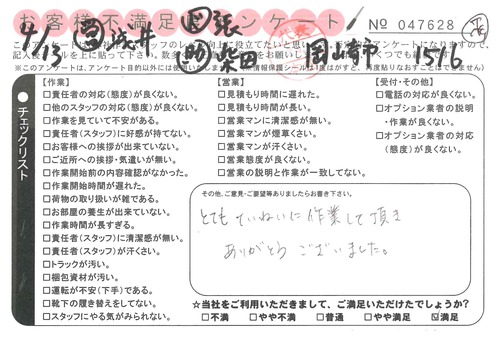 お客様不満足アンケート
No 047628
4/13 浅井 張 柴田 岡崎市 1516
【作業】
□責任者の対応(態度)が良くない。
□他のスタッフの対応(態度)が良くない。
□作業を見ていて不安がある。
□責任者(スタッフ)に好感が持てない。
□お客様への挨拶が出来ていない。
□ご近所への挨拶・気遣いが無い。
□作業開始前の内容確認がなかった。
□作業開始時間が遅れた。
□荷物の取り扱いが雑である。
□お部屋の養生が出来ていない。
□作業時間が長すぎる。
□責任者(スタッフ)に清潔感が無い。
□責任者(スタッフ)が汗くさい。
□トラックが汚い。
□梱包資材が汚い。
□運転が不安(下手)である。
□靴下の履き替えをしてない。
□スタッフにやる気がみられない。
【営業】
□見積もり時間に遅れた。
□見積もり時間が長い。
□営業マンに清潔感が無い。
□営業マンが煙草くさい。
□営業マンが汗くさい。
□営業態度が良くない。
□営業の説明と作業が一致してない。
【受付・その他】
□電話の対応が良くない。
□オプション業者の説明
・作業が良くない。
□オプション業者の対応
(態度)が良くない。
●チェックリスト
その他、ご意見・ご要望等ありましたらお書き下さい。
とても ていねいに 作業して頂き
ありがとう ございました。
☆当社をご利用いただきまして、ご満足いただけたでしょうか?
□不満 □やや不満 □普通 □やや満足 ☑満足